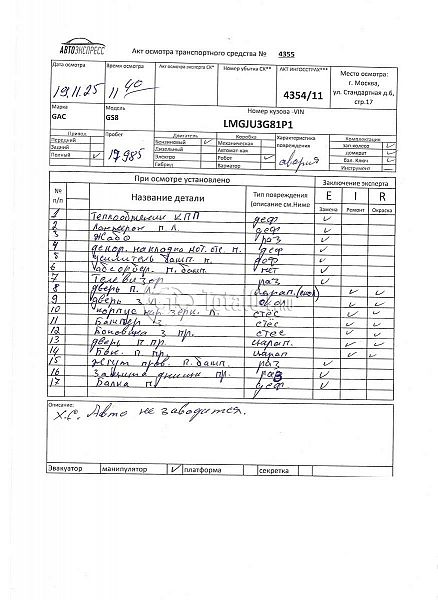 АВТОЭКСПРЕСС
Акт осмотра транспортного средства № 4355
Дата осмотра Время осмотра Акт осмотра эксперта СК* Номер убытка СК** АКТ ИНГОССТРАХ*** Место осмотра:
19.11.25 11 40 4354/11 г. Москва,
ул. Стандартная д.6,
стр.17
Марка Модель Номер кузова -VIN
GAC GS8 LMGJU3G81P1
Привод Пробег Двигатель Коробка Характеристика повреждения Комплектация
Передний Бензиновый ✓ Механическая зап.колесо ✓
Задний Дизельный Автомат-кая домкрат ✓
Полный ✓ 19985 Электро Робот ✓ авария Бал. Ключ ✓
Гибрид Вариатор Инструмент —
При осмотре установлено Заключение эксперта
№ п/п Название детали Тип повреждения (описание см.Ниже E I R
Замена Ремонт Окраска
1 Теплообменник КПП деф ✓
2 Лонжерон п.л. деф ✓
3 Жабо раз ✓
4 декор. накладка мот. отс. п. деф ✓
5 усилитель бамп. п. деф ✓
6 Абсорбер п. бамп. нет ✓
7 Телевизор раз ✓
8 дверь п. л. царап. ✓ ✓
9 дверь з. ✓ ✓
10 корпус нар. зерк. л. стёс ✓ ✓
11 Бампер з стёс ✓ ✓
12 Боковина з пр. стёс ✓ ✓
13 дверь п пр. царап. ✓ ✓
14 Бок. п пр. царап ✓ ✓
15 Жгут пров. п. бамп. раз ✓
16 Защита днища пр. раз ✓
17 Балка п. деф ✓
Описание:
Х.С. Авто не заводится.
Эвакуатор манипулятор ✓ платформа секретка